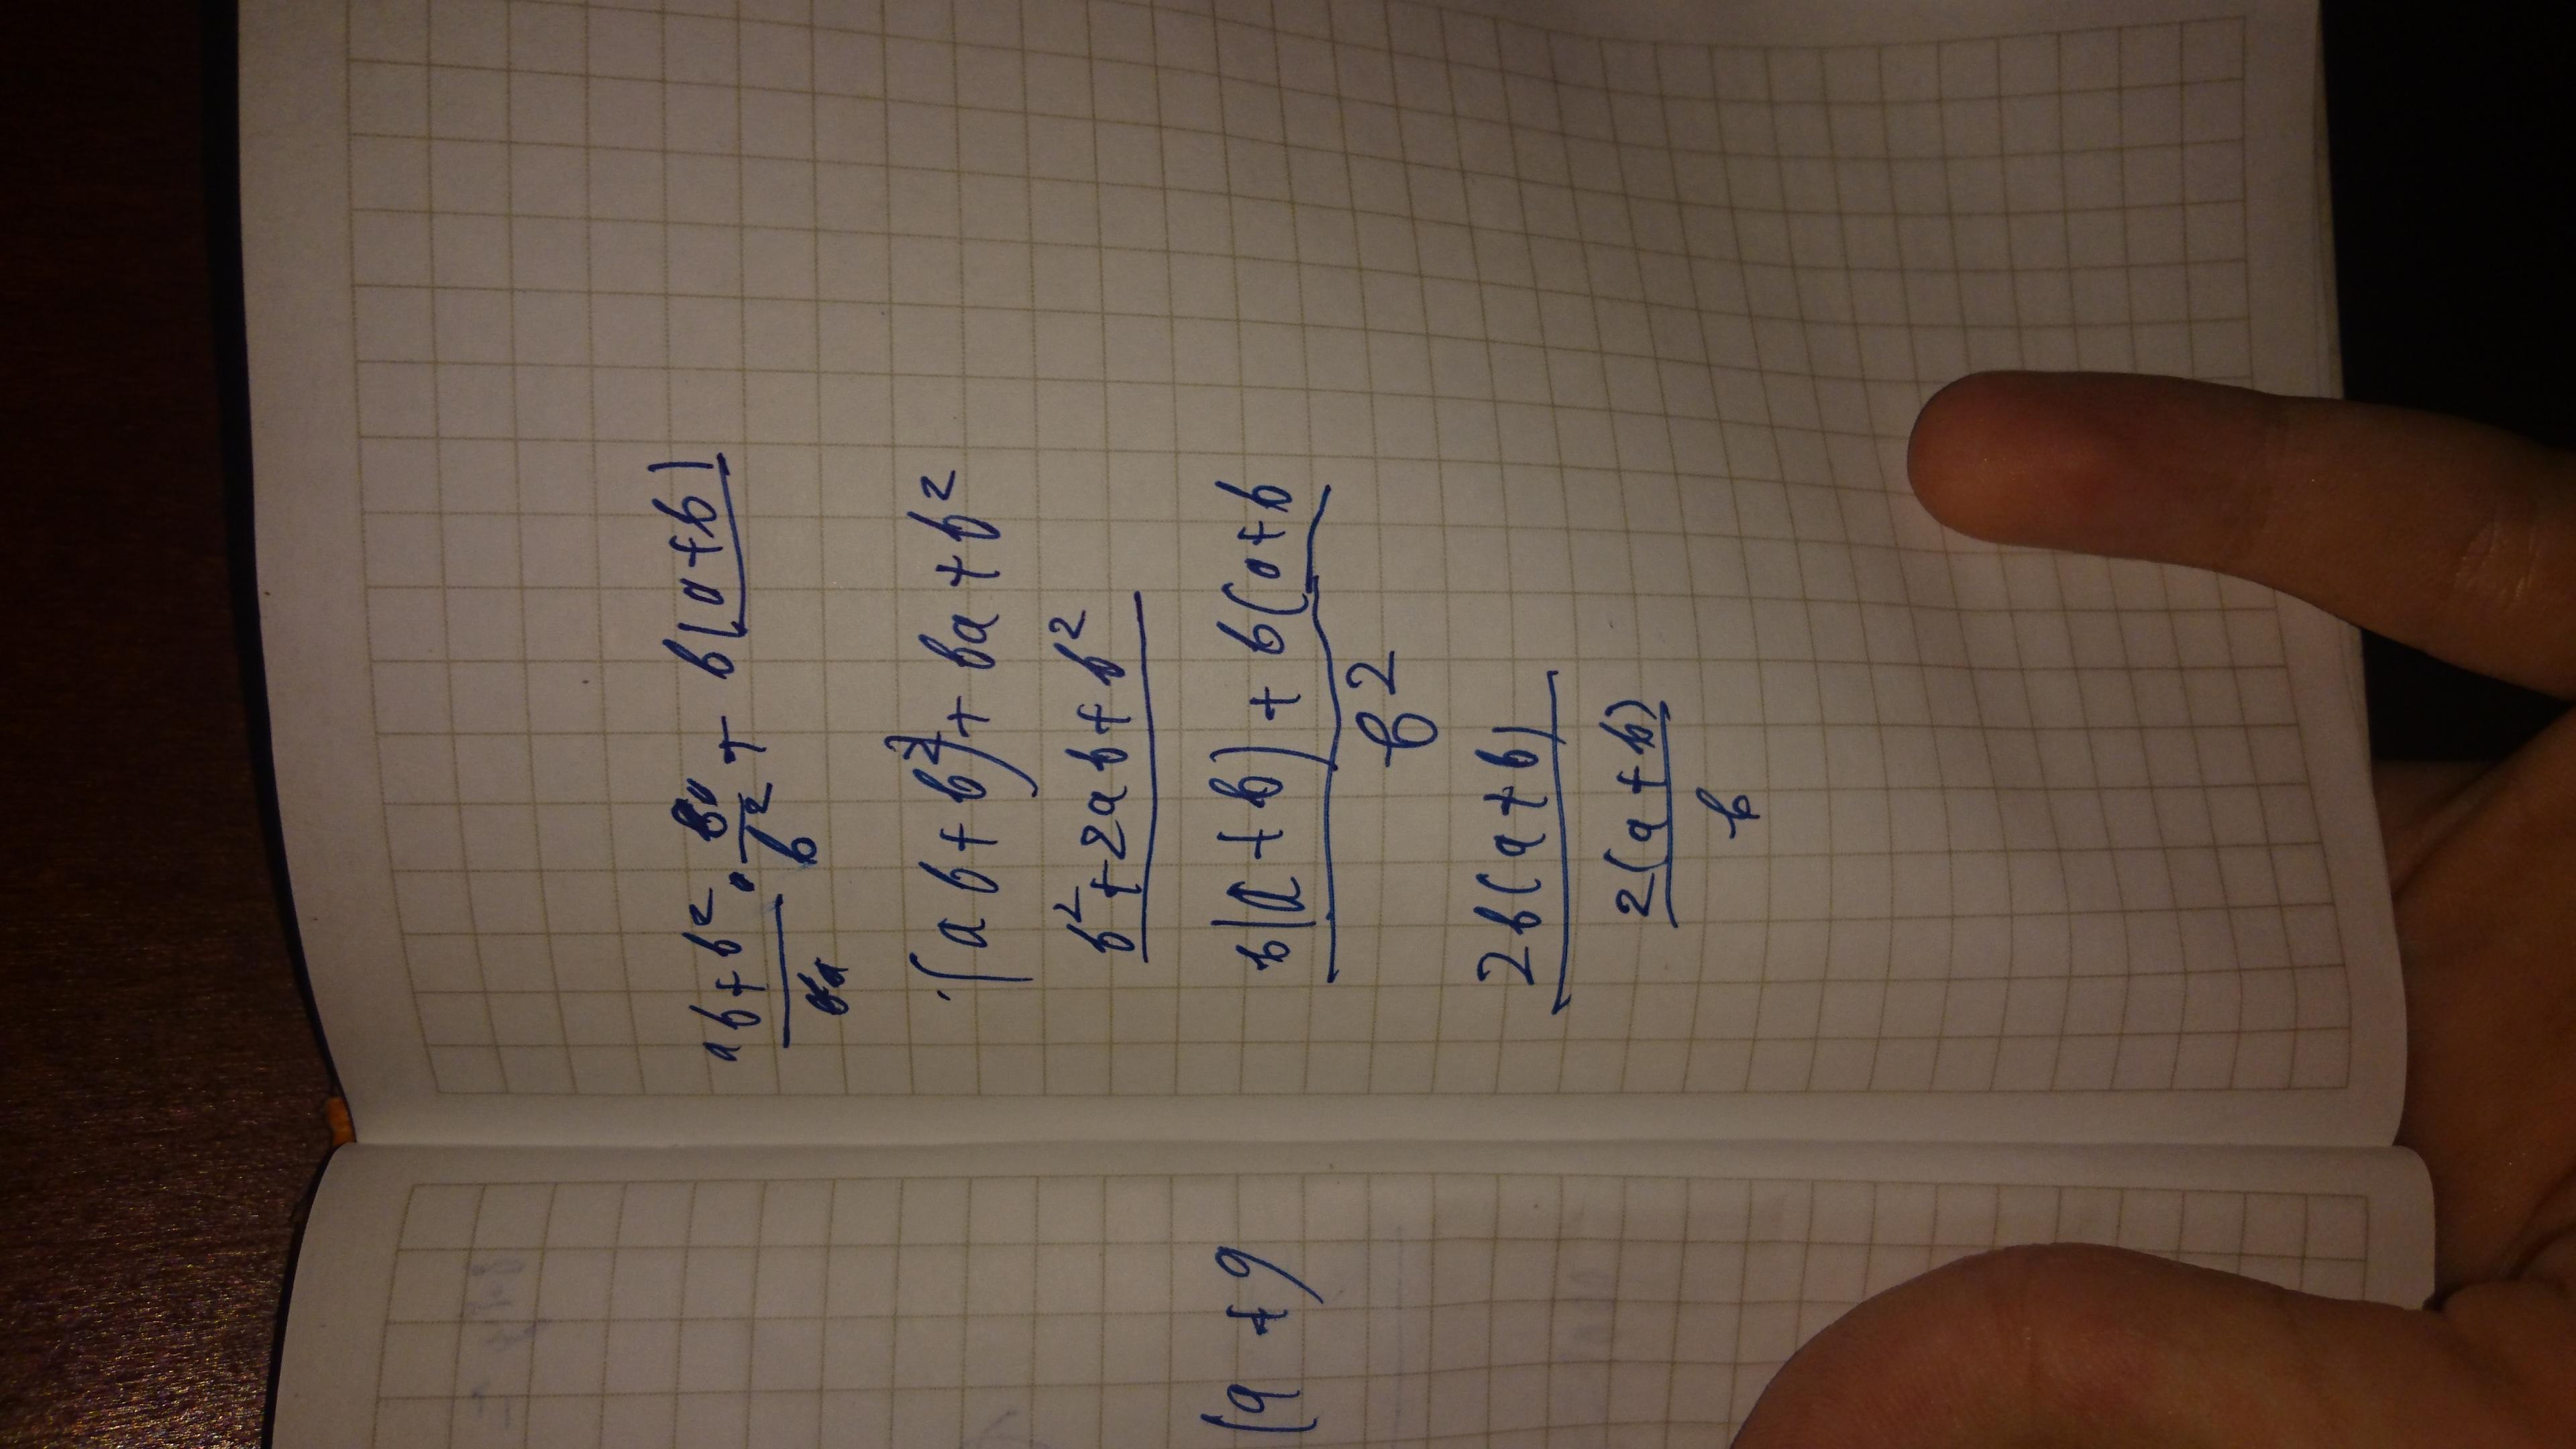 ab + b² · — + b(a+b)
b²
(ab + b²) + ba + b²
b² + 2ab + b²
b(a + b) + b(a+b
b2
2b(a+b)
2(a+b)
b
(a + 9